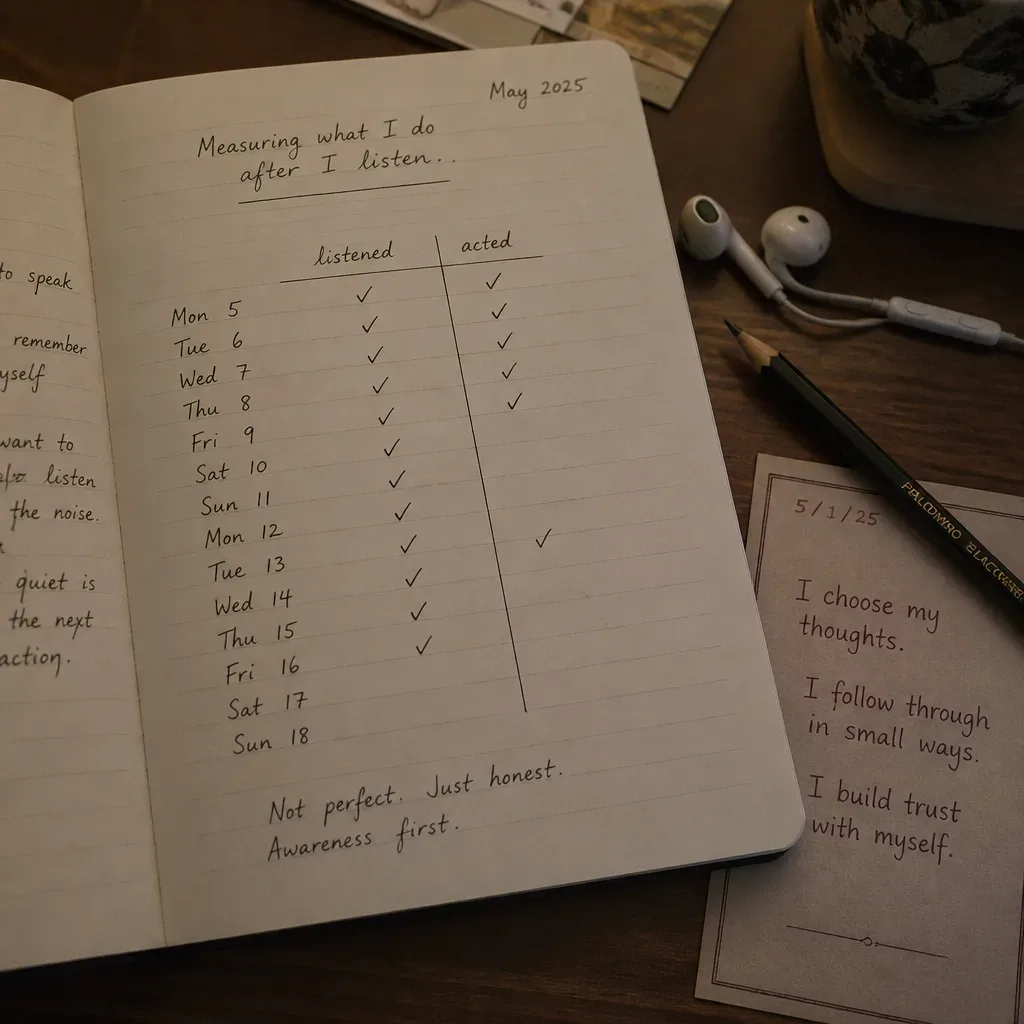 to speak
remember
want to
listen
the noise.
quiet is
the next
action.
May 2025
Measuring what I do
after I listen..
listened acted
Mon 5 ✓ ✓
Tue 6 ✓ ✓
Wed 7 ✓ ✓
Thu 8 ✓ ✓
Fri 9 ✓ ✓
Sat 10 ✓
Sun 11 ✓
Mon 12 ✓
Tue 13 ✓ ✓
Wed 14 ✓
Thu 15 ✓
Fri 16 ✓
Sat 17
Sun 18
Not perfect. Just honest.
Awareness first.
5/1/25
I choose my
thoughts.
I follow through
in small ways.
I build trust
with myself.